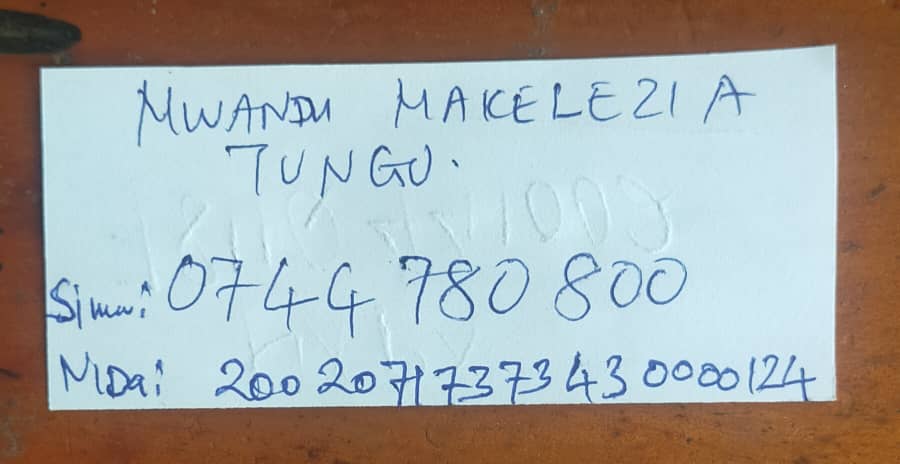 MWANDU MAKELEZIA
TUNGU.
Simu: 0744 780 800
NIDa: 20020717373430000124